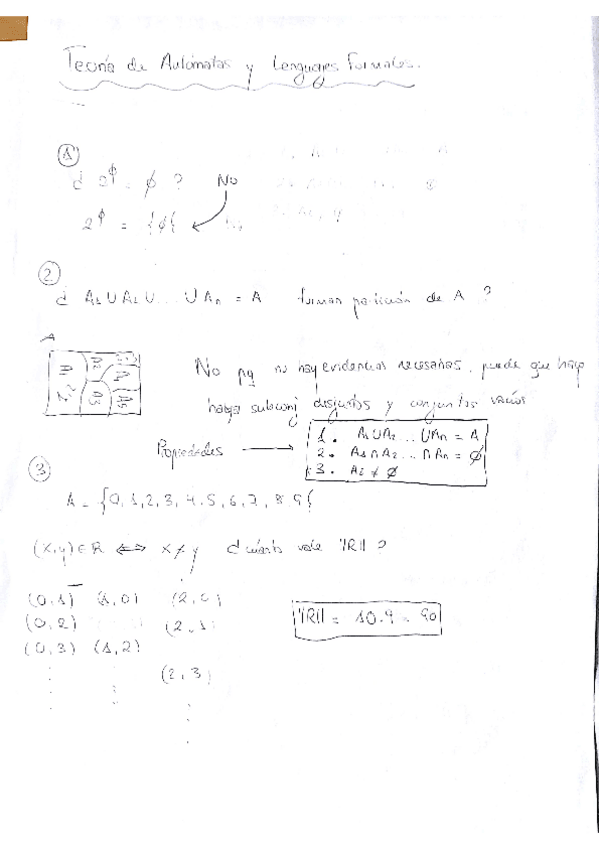 Teoría de Autómatas y Lenguajes Formales.
①
¿ 2^ϕ = ϕ ? No
2^ϕ = {ϕ}
②
¿ A₁ U A₂ U ... U Aₙ = A forman partición de A ?
A
A₁ A₂ A₃ A₄ A₅
No pq no hay evidencias necesarias, puede que haya
haya subconj disjuntos y conjuntos vacíos
Propiedades →
1. A₁ U A₂ ... U Aₙ = A
2. A₁ ∩ A₂ ... ∩ Aₙ = ϕ
3. Aᵢ ≠ ϕ
③
A = {0,1,2,3,4,5,6,7,8,9}
(x,y) ∈ R ⟺ x ≠ y ¿cuánto vale ||R|| ?
(0,1) (1,0) (2,0)
(0,2) (2,1)
(0,3) (1,2)
(2,3)
||R|| = 10.9 = 90